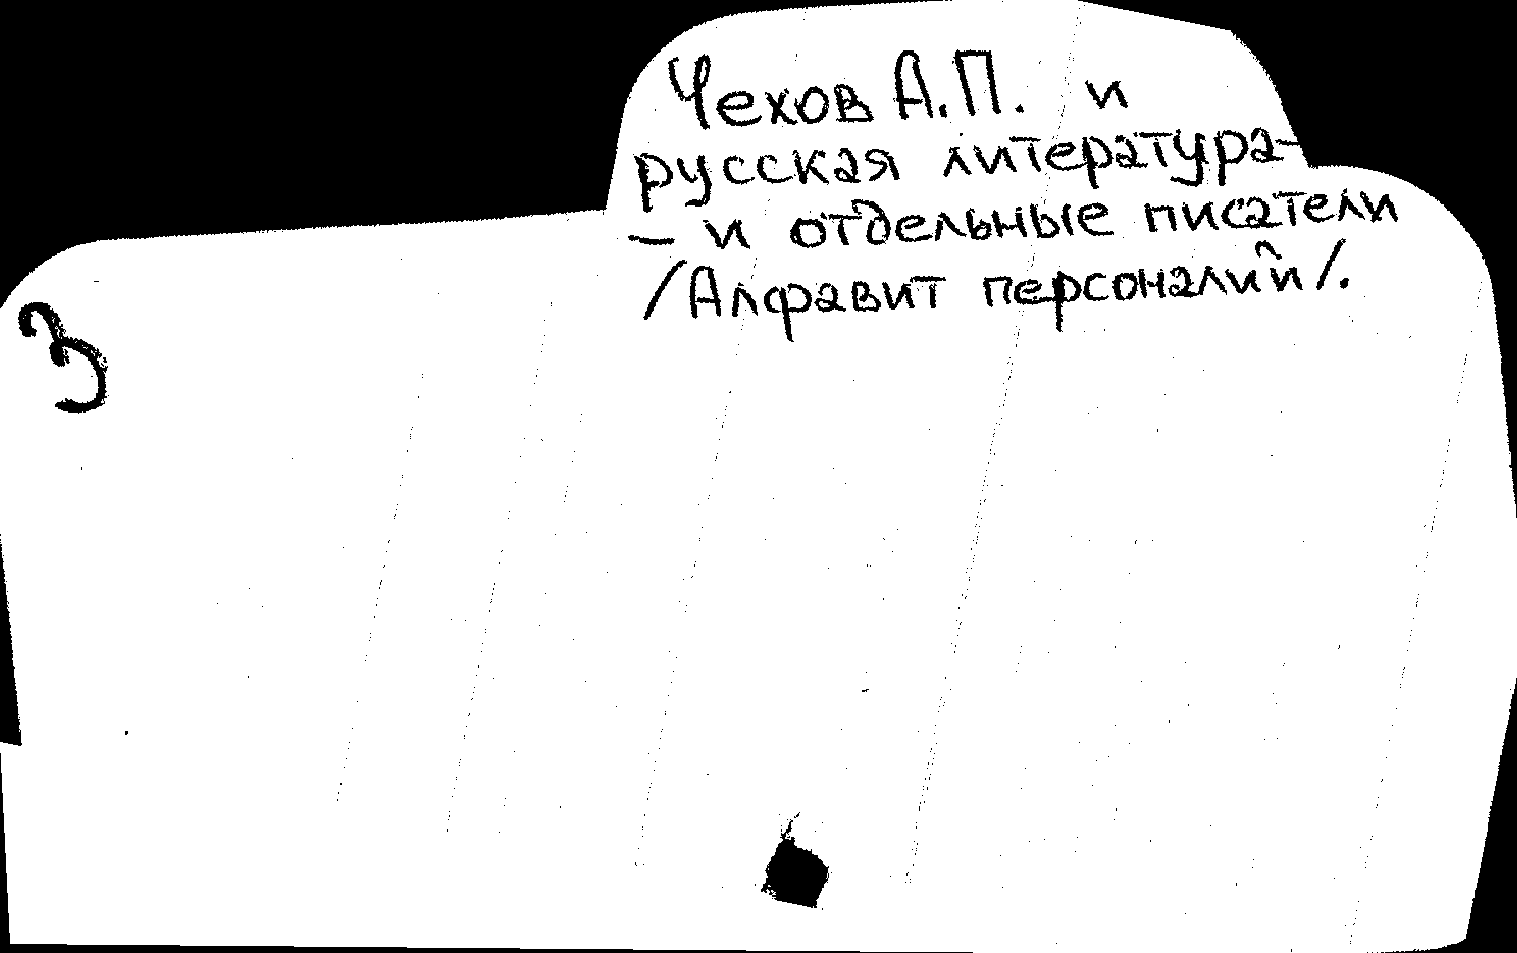 Чехов А.П. и
русская литература-
- и отдельные писатели
/Алфавит персоналий/.
З